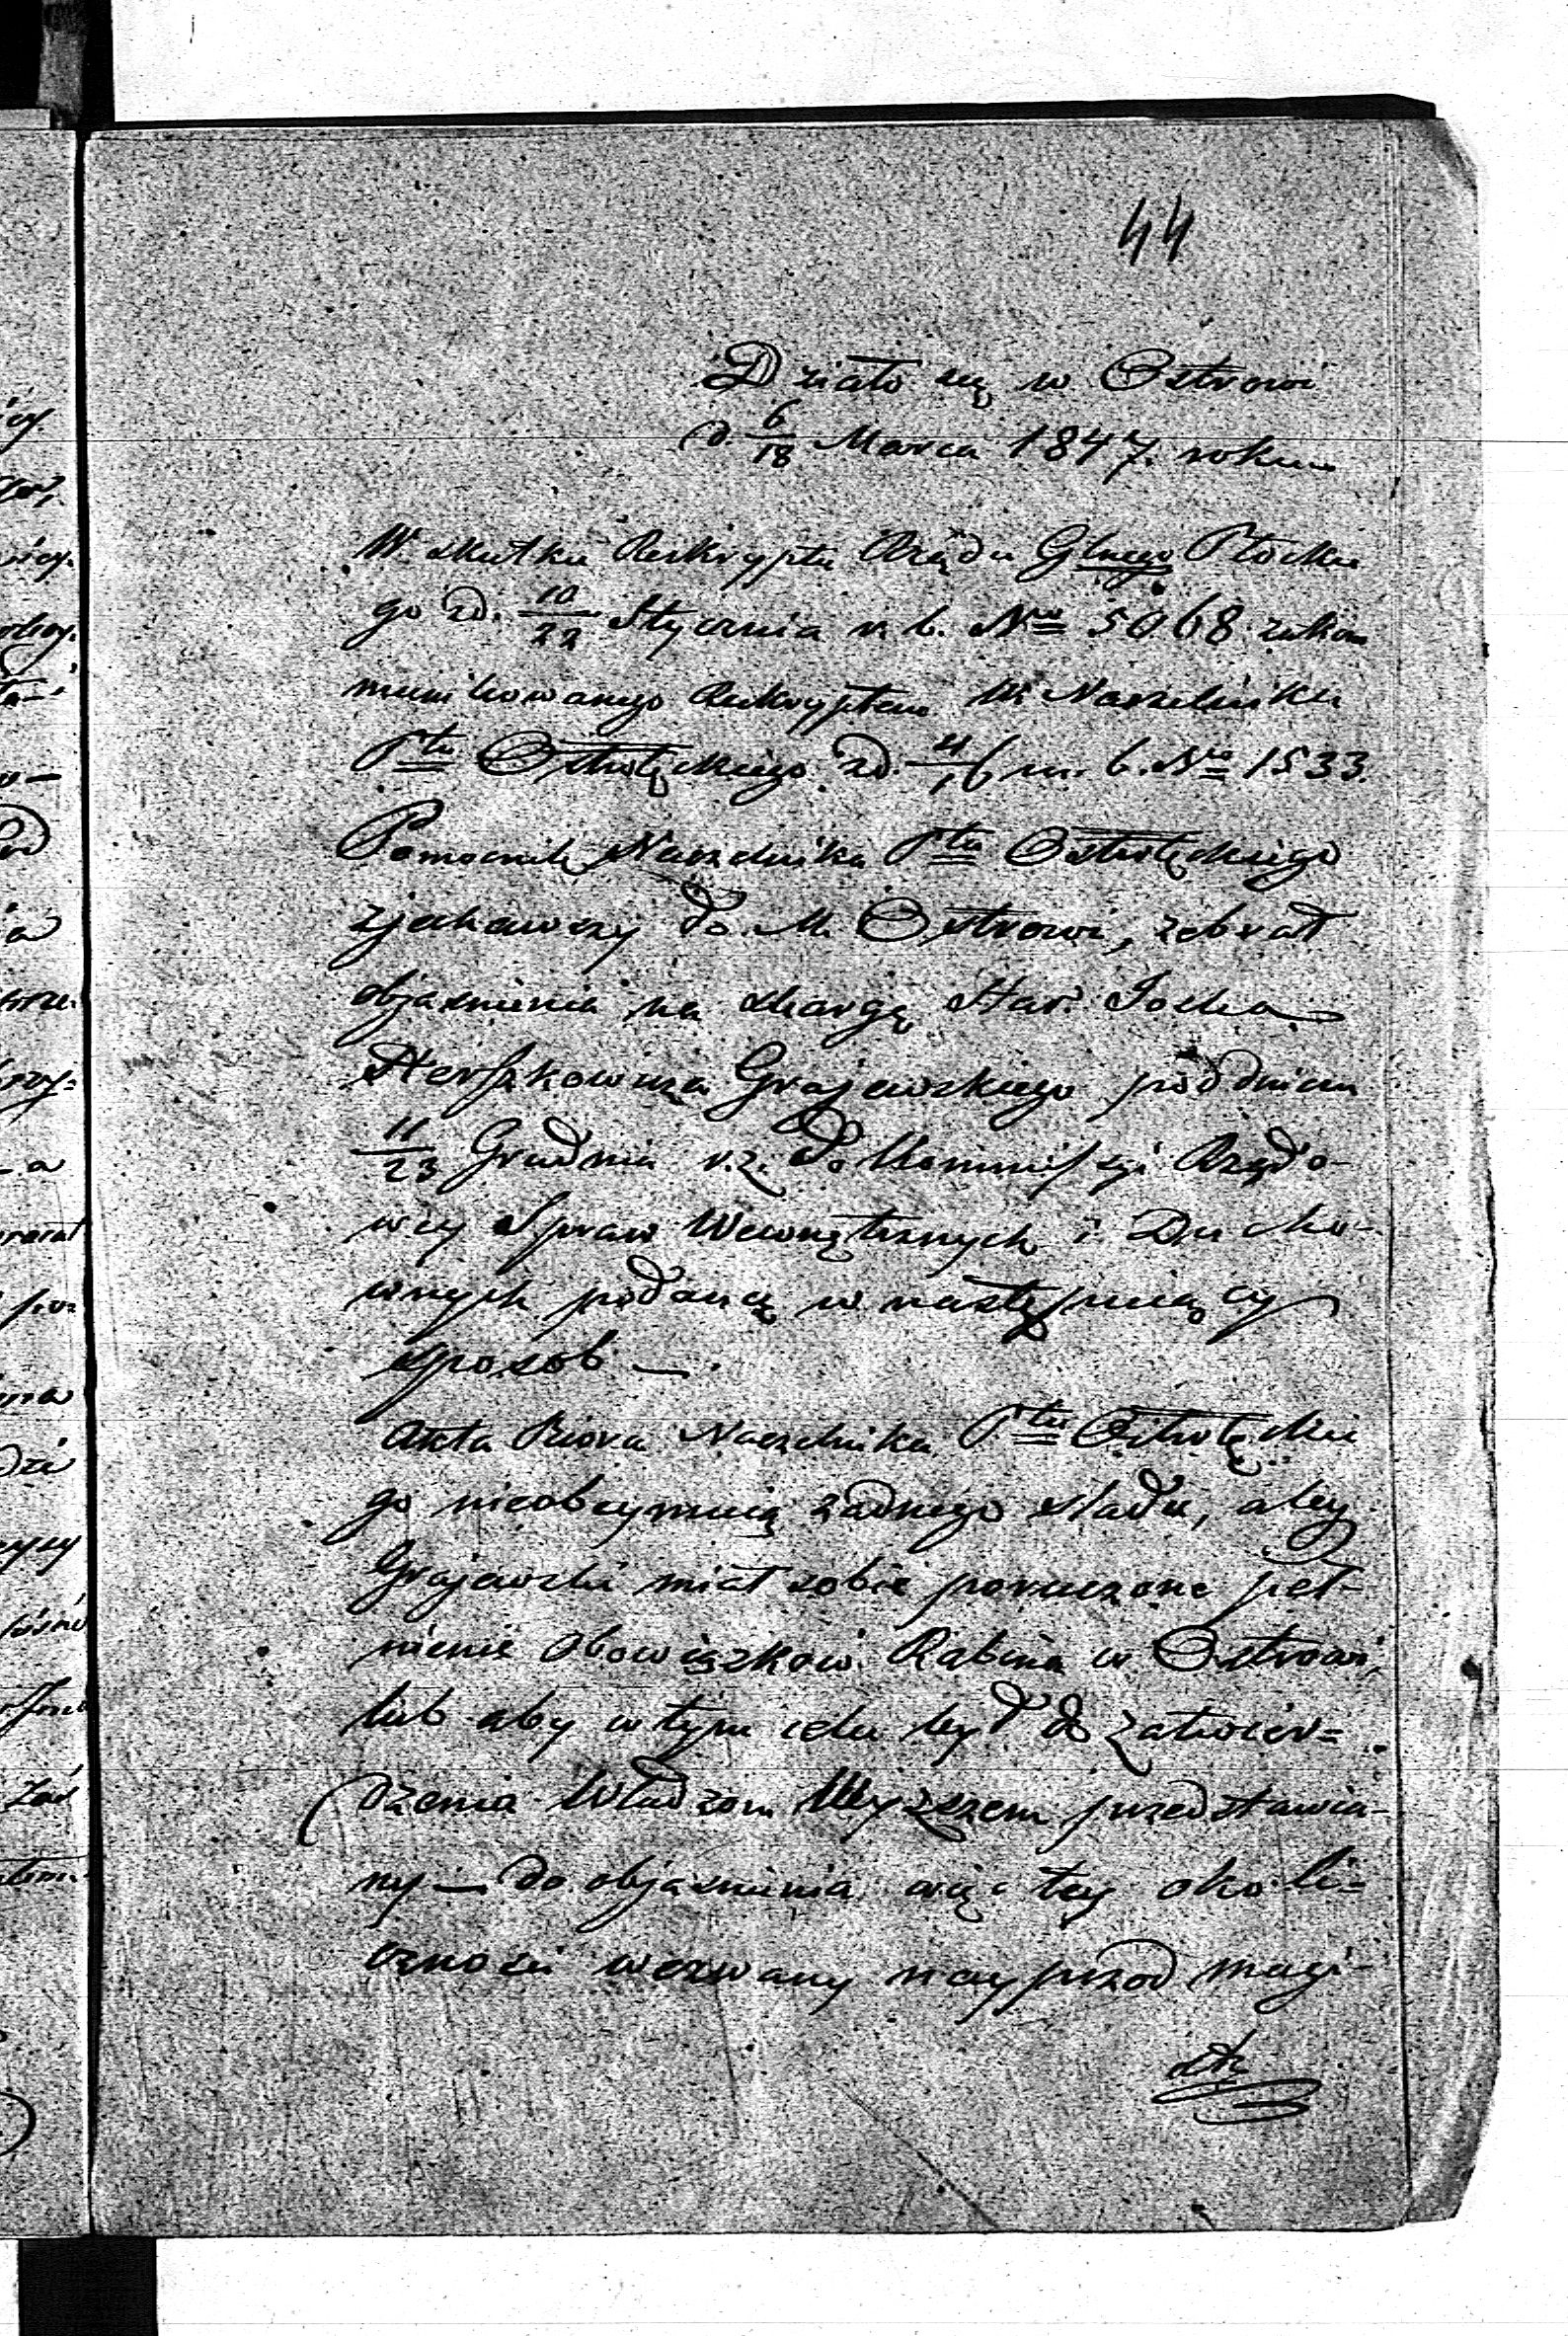 44
Działo się w Ostrowi
d. 6/18 Marca 1847. roku
W skutku Reskryptu Rządu Glnego Płockie
go zd. 10/22 Stycznia r. b. No 5068 zakom
munikowanego Reskryptem W. Naczelnika
Ptu Ostrołęckiego zd. 4/16 m. b. No 1533.
Pomocnik Naczelnika Ptu Ostrołęckiego
zjechawszy do M. Ostrowi, zebrał
objasnienia na skargę Star. Joska
Herszkowicza Grajewskiego pod dniem
11/23 Grudnia r. z. do Kommissyi Rządo-
wey Spraw Wewnętrznych i Ducho-
wnych podaną w następuiący
sposob —
Akta Biora Naczelnika Ptu Ostrołęckie
go nieobeymuią żadnego sladu, aby
Grajewski miał sobie poruczone peł-
nienie Obowiązkow Rabina w Ostrowi,
lub aby w tym celu był do zatwier=
dzenia Władzom Wyższem przedstawia-
ny — do objasnienia więc tey okoli=
cznosci wezwany nayprzod magi-